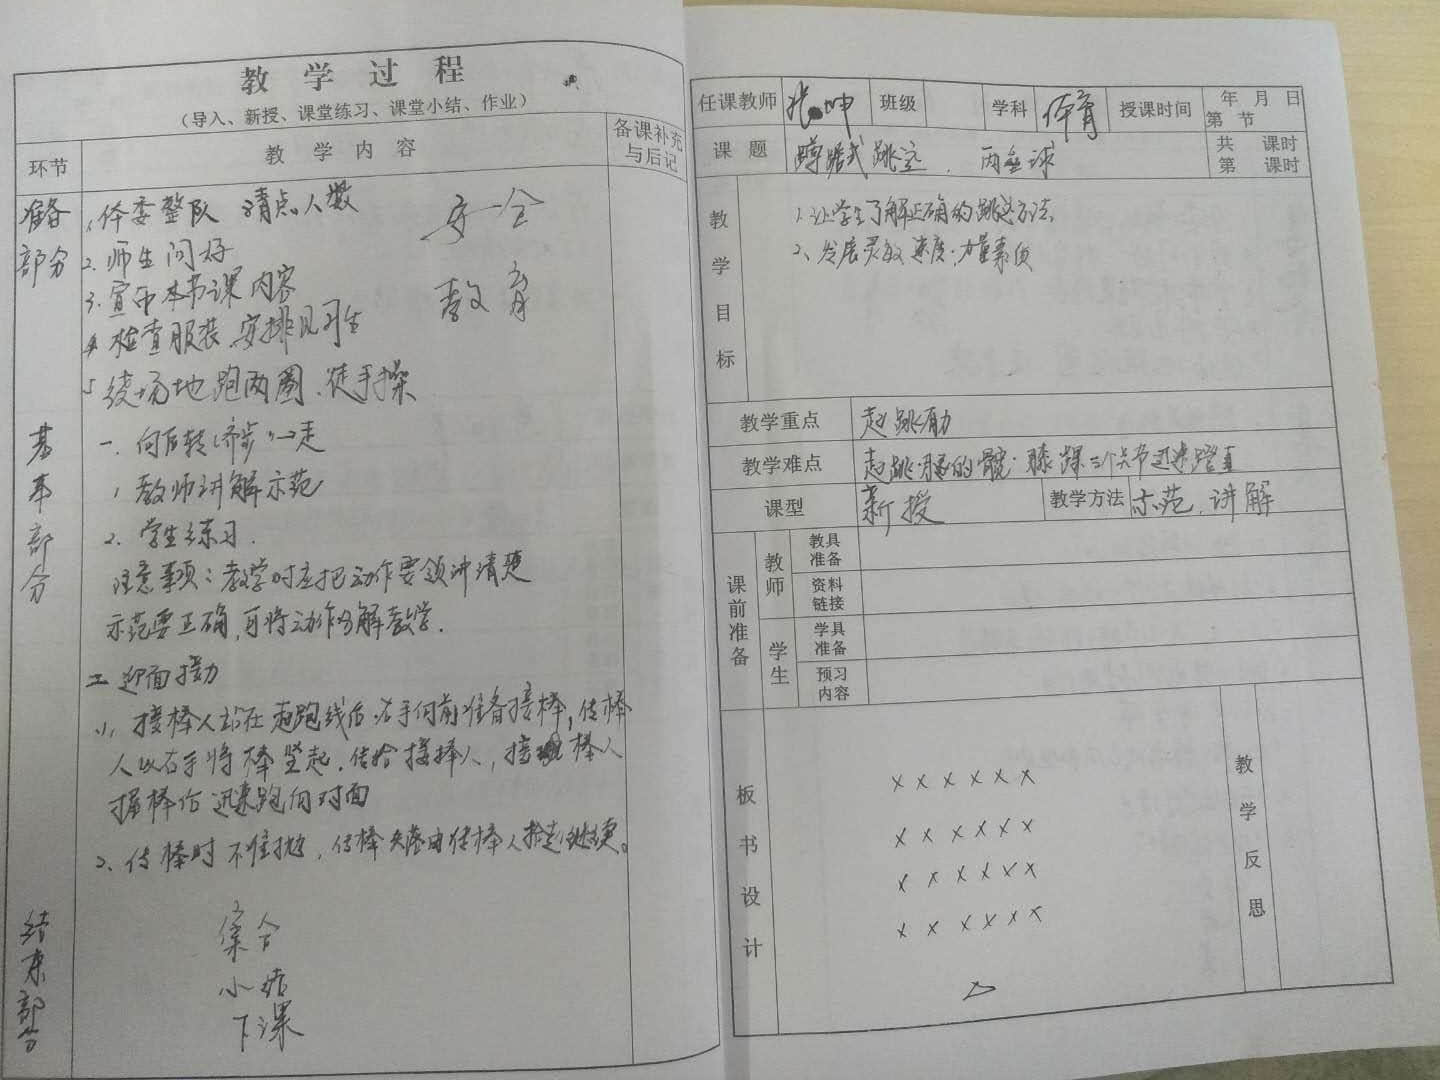 教学过程
（导入、新授、课堂练习、课堂小结、作业）
环节
教学内容
备课补充
与后记
准备
部分
1、体委整队 清点人数
2. 师生问好
3. 宣布本节课内容
4 检查服装、安排见习生
5 绕场地跑两圈、徒手操
安全
教育
基本部分
一、向后转（齐步）走
1 教师讲解示范
2、学生练习.
注意事项：教学时应把动作要领讲清楚
示范要正确，可将动作分解教学.
二 迎面接力
1、接棒人站在起跑线后.右手向前准备接棒，传棒
人以右手将棒竖起.传给接棒人，接棒人
握棒后迅速跑向对面
2、传棒时不准抛，传棒失落由传棒人拾起继续。
结束部分
集合
小结
下课
任课教师 张坤 班级 学科 体育 授课时间 年 月 日
第 节
课题 蹲踞式跳远、
球
共 课时
第 课时
教学目标
1、让学生了解正确的跳远方法、
2、发展灵敏.速度.力量素质
教学重点 起跳有力
教学难点 起跳腿的髋.膝.踝三个关节迅速蹬直
课型 新授 教学方法 示范、讲解
课前准备
教师
教具
准备
资料
链接
学生
学具
准备
预习
内容
板书设计
× × × × × ×
× × × × × ×
× × × × × ×
× × × × × ×
教学反思